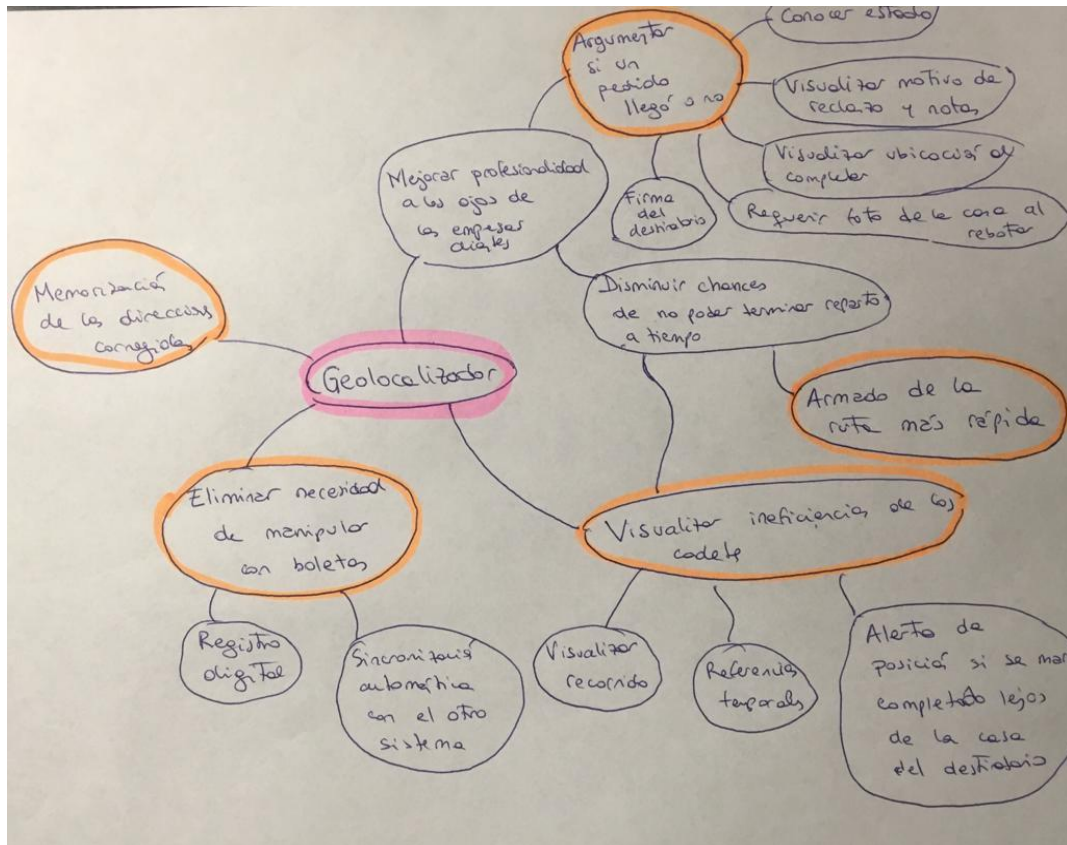 Conocer estado
Argumentar
si un
pedido
llegó o no
Visualizar motivo de
rechazo y notas
Visualizar ubicación al
completar
Requerir foto de la casa al
rebotar
Firma
del
destinatario
Mejorar profesionalidad
a los ojos de
las empresas
clientes
Disminuir chances
de no poder terminar reparto
a tiempo
Memorización
de las direcciones
corregidas
Geolocalizador
Armado de la
ruta más rápida
Eliminar necesidad
de manipular
con boletas
Visualizar ineficiencias de los
cadetes
Registro
digital
Sincronización
automática
con el otro
sistema
Visualizar
recorrido
Referencias
temporales
Alerta de
posición si se mar
completado lejos
de la casa
del destinatario